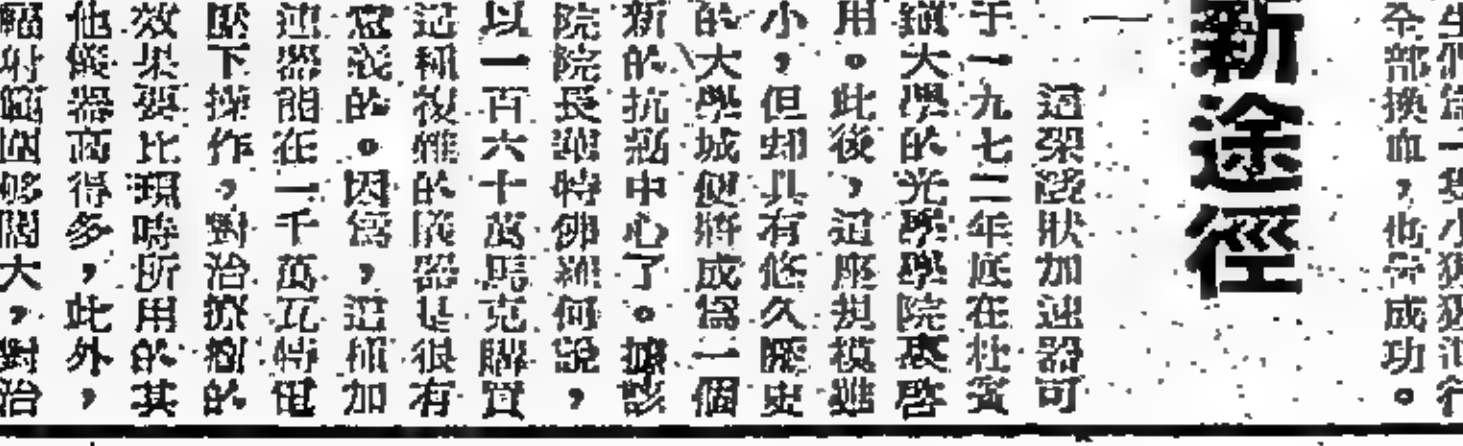 生們為一隻小猢猻進行
全部換血，也告成功。
新途徑
這架陵狀加速器可
于一九七二年底在杜賓
鎮大學的光學學院裝啓
用。此後，這座規模雖
小，但却具有悠久歷史
的大學城便將成為一個
新的抗癌中心了。據該
院院長雖特佛綱何說，
以一百六十萬馬克購買
這種複雜的儀器是很有
意義的。因為，這種加
速器能在一千萬瓦特電
壓下操作，對治療瘤的
效果要比現時所用的其
他儀器高得多，此外，
輻射範圍够闊大，對治